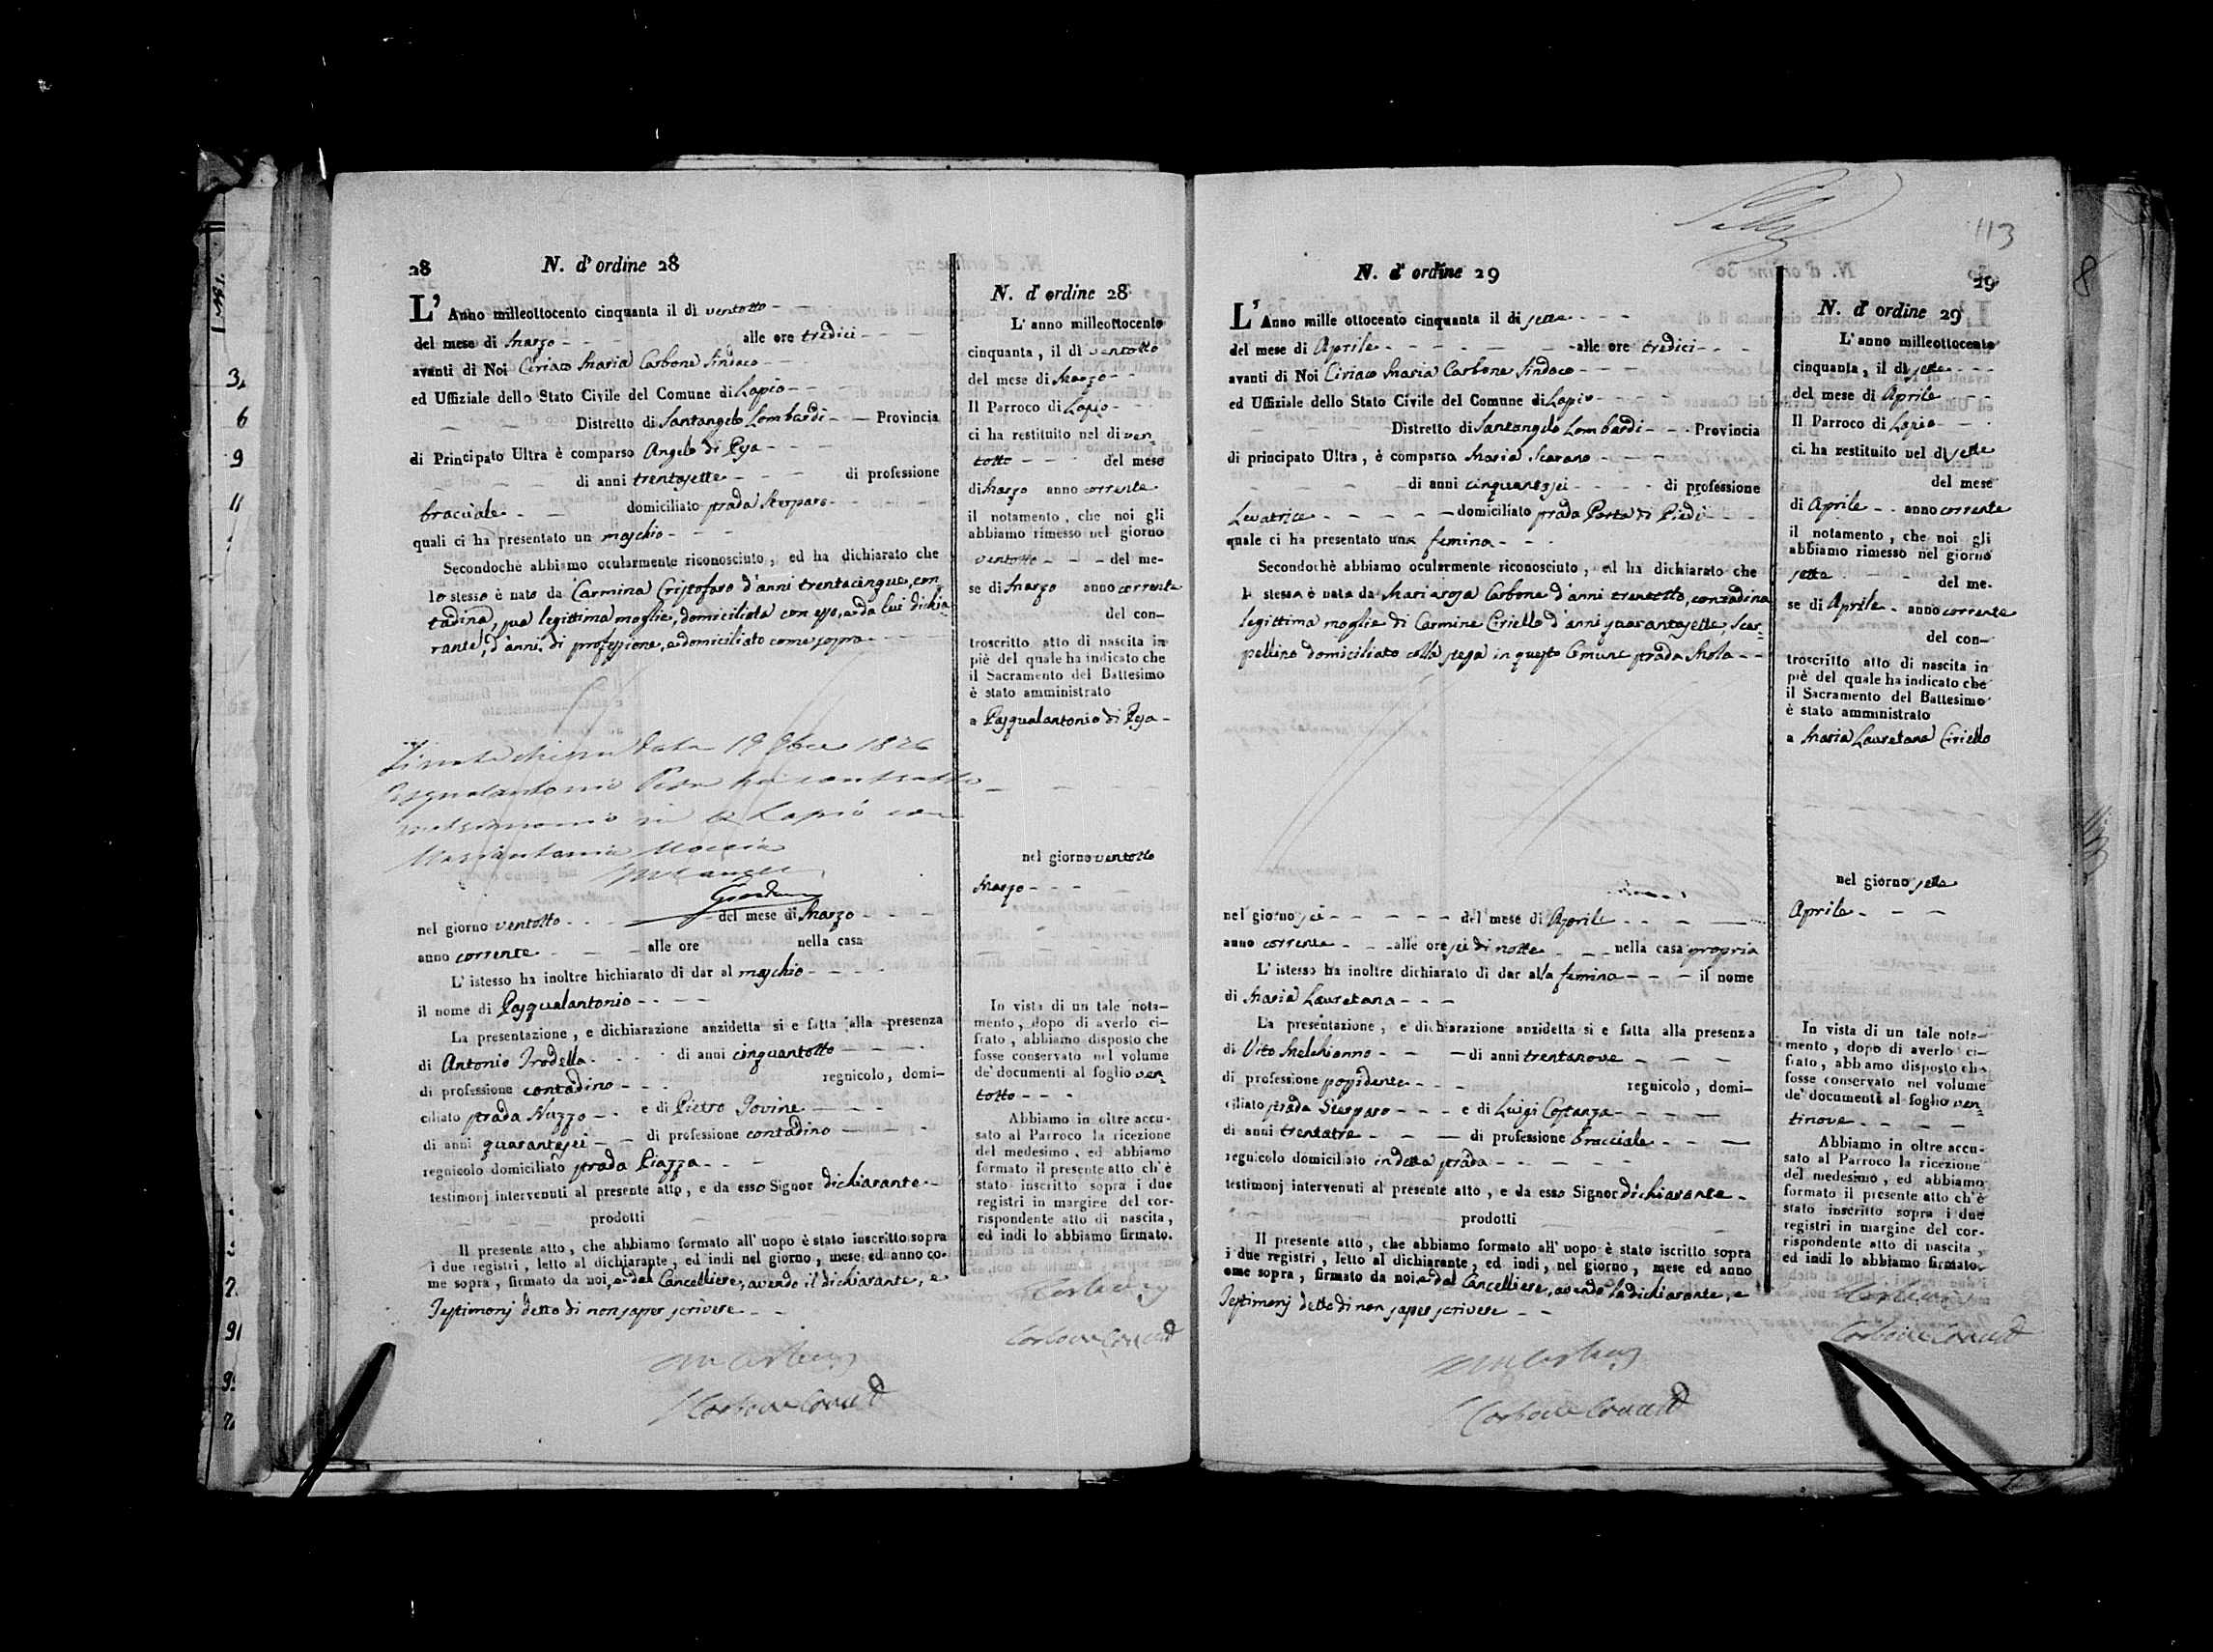 28
N. d' ordine 28
L' Anno milleottocento cinquanta il dì ventotto
del mese di Marzo alle ore tredici
avanti di Noi Ciriaco Maria Carbone Sindaco
ed Uffiziale dello Stato Civile del Comune di Lapio
Distretto di Santangelo Lombardi Provincia
di Principato Ultra è comparso Angelo di Pesa
di anni trentasette di professione
bracciale domiciliato strada Scarparo
quali ci ha presentato un maschio
Secondochè abbiamo ocularmente riconosciuto, ed ha dichiarato che
lo stesso è nato da Carmina Cristofaro d'anni trentacinque, con
tadina, sua legittima moglie, domiciliata con esso, e da lui dichia
rante, d'anni, di professione, e domiciliato come sopra
data 19 1876
Pasqualantonio Pesa ha contratto
matrimonio in Lapio con
Mariantonia Moccia
nel giorno ventotto del mese di Marzo
anno corrente alle ore nella casa
L' istesso ha inoltre hichiarato di dar al maschio
il nome di Pasqualantonio
La presentazione, e dichiarazione anzidetta si e fatta alla presenza
di Antonio Trodella di anni cinquantotto
di professione contadino regnicolo, domi-
ciliato strada Nuzzo e di Pietro Jovine
di anni quarantasei di professione contadino
regnicolo domiciliato strada Piazza
testimonj intervenuti al presente atto, e da esso Signor dichiarante
prodotti
Il presente atto, che abbiamo formato all' uopo è stato inscritto sopra
i due registri, letto al dichiarante, ed indi nel giorno, mese, ed anno co-
me sopra, firmato da noi, e dal Cancelliere, avendo il dichiarante, e
Testimonj detto di non saper scrivere
N. d' ordine 28
L' anno milleottocento
cinquanta, il dì ventotto
del mese di Marzo
Il Parroco di Lapio
ci ha restituito nel dì ven
totto del mese
di Marzo anno corrente
il notamento, che noi gli
abbiamo rimesso nel giorno
ventotto del me-
se di Marzo anno corrente
del con-
troscritto atto di nascita in
piè del quale ha indicato che
il Sacramento del Battesimo
è stato amministrato
a Pasqualantonio di Pesa
nel giorno ventotto
Marzo
In vista di un tale nota-
mento, dopo di averlo ci-
frato, abbiamo disposto che
fosse conservato nel volume
de' documenti al foglio ven
totto
Abbiamo in oltre accu-
sato al Parroco la ricezione
del medesimo, ed abbiamo
formato il presente atto ch' è
stato inscritto sopra i due
registri in margine del cor-
rispondente atto di nascita,
ed indi lo abbiamo firmato.
113
N. d' ordine 29
29
L' Anno mille ottocento cinquanta il dì sette
del mese di Aprile alle ore tredici
avanti di Noi Ciriaco Maria Carbone Sindaco
ed Uffiziale dello Stato Civile del Comune di Lapio
Distretto di Santangelo Lombardi Provincia
di principato Ultra, è comparsa Maria Scarano
di anni cinquantasei di professione
Levatrice domiciliato strada Porta di Piedi
quale ci ha presentato una femina
Secondochè abbiamo ocularmente riconosciuto, ed ha dichiarato che
la stessa è nata da Mariarosa Carbone d'anni trentotto, contadina
legittima moglie di Carmine Ciriello d'anni quarantasette, Scar
pellino domiciliato colla stessa in questo Comune strada Mola
nel giorno sei del mese di Aprile
anno corrente alle ore sei di notte nella casa propria
L' istesso ha inoltre dichiarato di dar alla femina il nome
di Maria Lauretana
La presentazione, e dichiarazione anzidetta si e fatta alla presenza
di Vito Melchionno di anni trentanove
di professione possidente regnicolo, domi-
ciliato strada Scarparo e di Luigi Costanza
di anni trentatre di professione bracciale
regnicolo domiciliato in detta strada
testimonj intervenuti al presente atto, e da esso Signor dichiarante
prodotti
Il presente atto, che abbiamo formato all' uopo è stato iscritto sopra
i due registri, letto al dichiarante, ed indi, nel giorno, mese ed anno
ome sopra, firmato da noi, e dal Cancelliere, avendo la dichiarante, e
Testimonj detto di non saper scrivere
N. d' ordine 29
L' anno milleottocento
cinquanta, il dì sette
del mese di Aprile
Il Parroco di Lapio
ci ha restituito nel dì sette
del mese
di Aprile anno corrente
il notamento, che noi gli
abbiamo rimesso nel giorno
sette del me-
se di Aprile anno corrente
del con-
troscritto atto di nascita in
piè del quale ha indicato che
il Sacramento del Battesimo
è stato amministrato
a Maria Lauretana Ciriello
nel giorno sette
Aprile
In vista di un tale nota-
mento, dopo di averlo ci-
frato, abbiamo disposto che
fosse conservato nel volume
de' documenti al foglio ven
tinove
Abbiamo in oltre accu-
sato al Parroco la ricezione
del medesimo, ed abbiamo
formato il presente atto ch' è
stato inscritto sopra i due
registri in margine del cor-
rispondente atto di nascita,
ed indi lo abbiamo firmato.